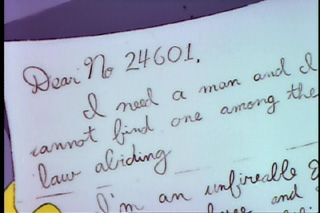 Dear No 24601,
I need a man and I
cannot find one among the
law abiding
I'm an unfireable
and